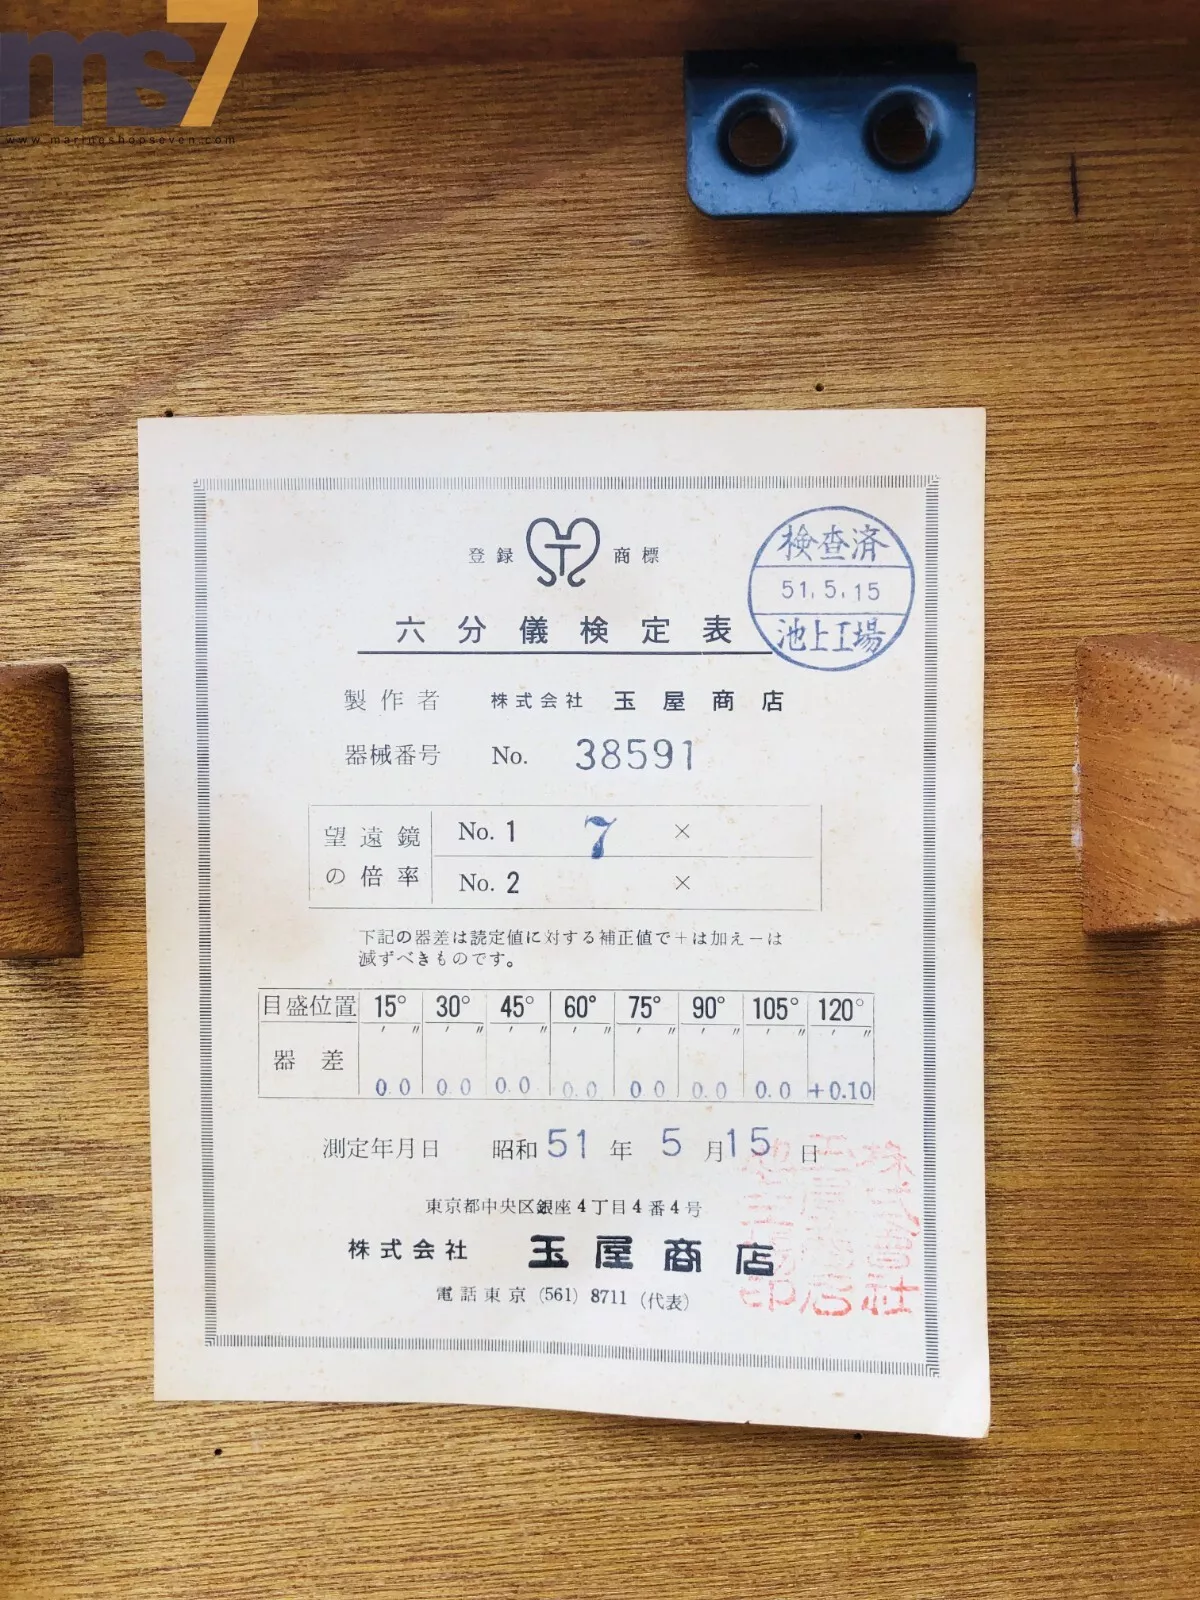 ms7
www.marineshopseven.com
登録 商標
検査済
51.5.15
池上工場
六分儀検定表
製作者 株式会社 玉屋商店
器械番号 No. 38591
望遠鏡の倍率
No. 1 7 ×
No. 2 ×
下記の器差は読定値に対する補正値で+は加え-は
減ずべきものです。
目盛位置 15° 30° 45° 60° 75° 90° 105° 120°
′ ″ ′ ″ ′ ″ ′ ″ ′ ″ ′ ″ ′ ″ ′ ″
器差 0.0 0.0 0.0 0.0 0.0 0.0 0.0 +0.10
測定年月日 昭和 51 年 5 月 15 日
東京都中央区銀座4丁目4番4号
株式会社 玉屋商店
電話東京 (561) 8711 (代表)